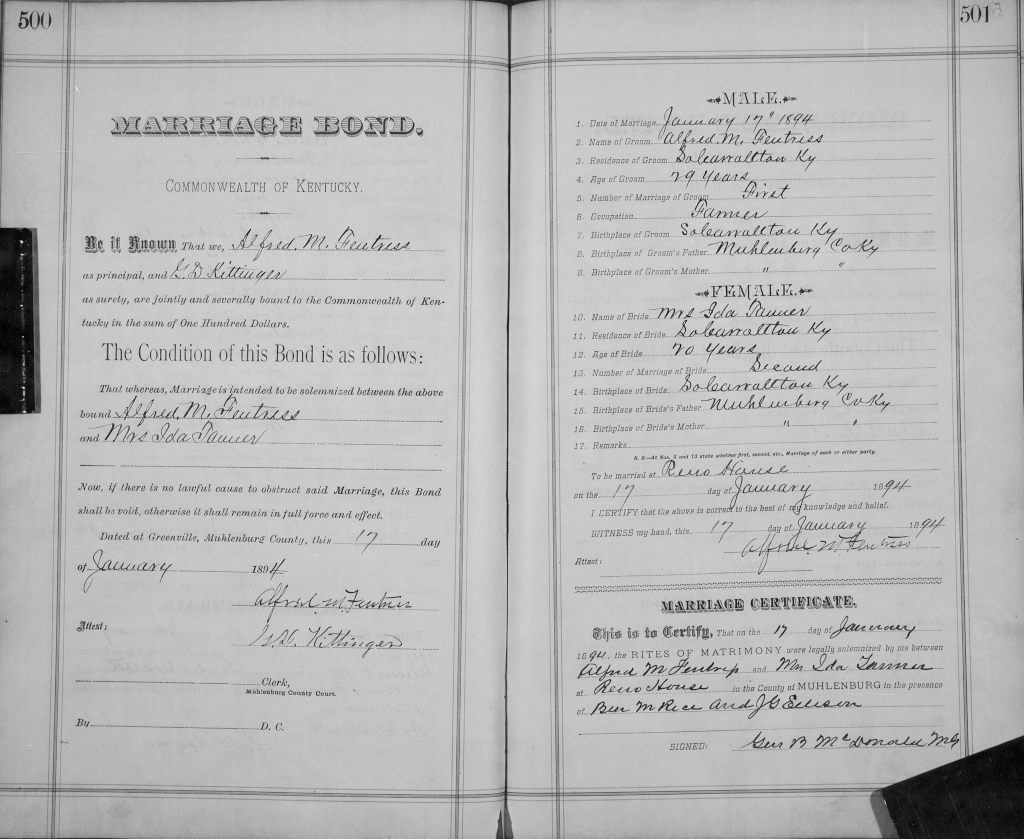 500
MARRIAGE BOND.
COMMONWEALTH OF KENTUCKY.
Be it Known That we, Alfred, M. Fentress
as principal, and G. D Kittinger
as surety, are jointly and severally bound to the Commonwealth of Ken-
tucky in the sum of One Hundred Dollars.
The Condition of this Bond is as follows:
That whereas, Marriage is intended to be solemnized between the above
bound Alfred, M. Fentress
and Mrs Ida Tanner
Now, if there is no lawful cause to obstruct said Marriage, this Bond
shall be void, otherwise it shall remain in full force and effect.
Dated at Greenville, Muhlenburg County, this 17 day
of January 1894
Alfred M Fentress
Attest:
G. D. Kittinger
Clerk,
Muhlenburg County Court.
By D. C.
501
MALE.
1. Date of Marriage January 17" 1894
2. Name of Groom Alfred. M. Fentress
3. Residence of Groom SoCarrollton Ky
4. Age of Groom 29 Years
5. Number of Marriage of Groom First
6. Occupation Farmer
7. Birthplace of Groom SoCarrollton Ky
8. Birthplace of Groom's Father Muhlenberg Co Ky
9. Birthplace of Groom's Mother " "
FEMALE.
10. Name of Bride Mrs Ida Tanner
11. Residence of Bride SoCarrollton Ky
12. Age of Bride 20 Years
13. Number of Marriage of Bride Second
14. Birthplace of Bride SoCarrollton Ky
15. Birthplace of Bride's Father Muhlenberg Co Ky
16. Birthplace of Bride's Mother " "
17. Remarks
N. B.—At Nos. 5 and 13 state whether first, second, etc., Marriage of each or either party.
To be married at Reno House
on the 17 day of January 1894
I CERTIFY that the above is correct to the best of my knowledge and belief.
WITNESS my hand, this 17 day of January 1894
Alfred M Fentress
Attest:
MARRIAGE CERTIFICATE.
This is to Certify, That on the 17 day of January
1894, the RITES OF MATRIMONY were legally solemnized by me between
Alfred M Fentress and Mrs Ida Tanner
at Reno House in the County of MUHLENBURG in the presence
of Ben M Rice and J G Ellison
SIGNED: Geo B McDonald MG